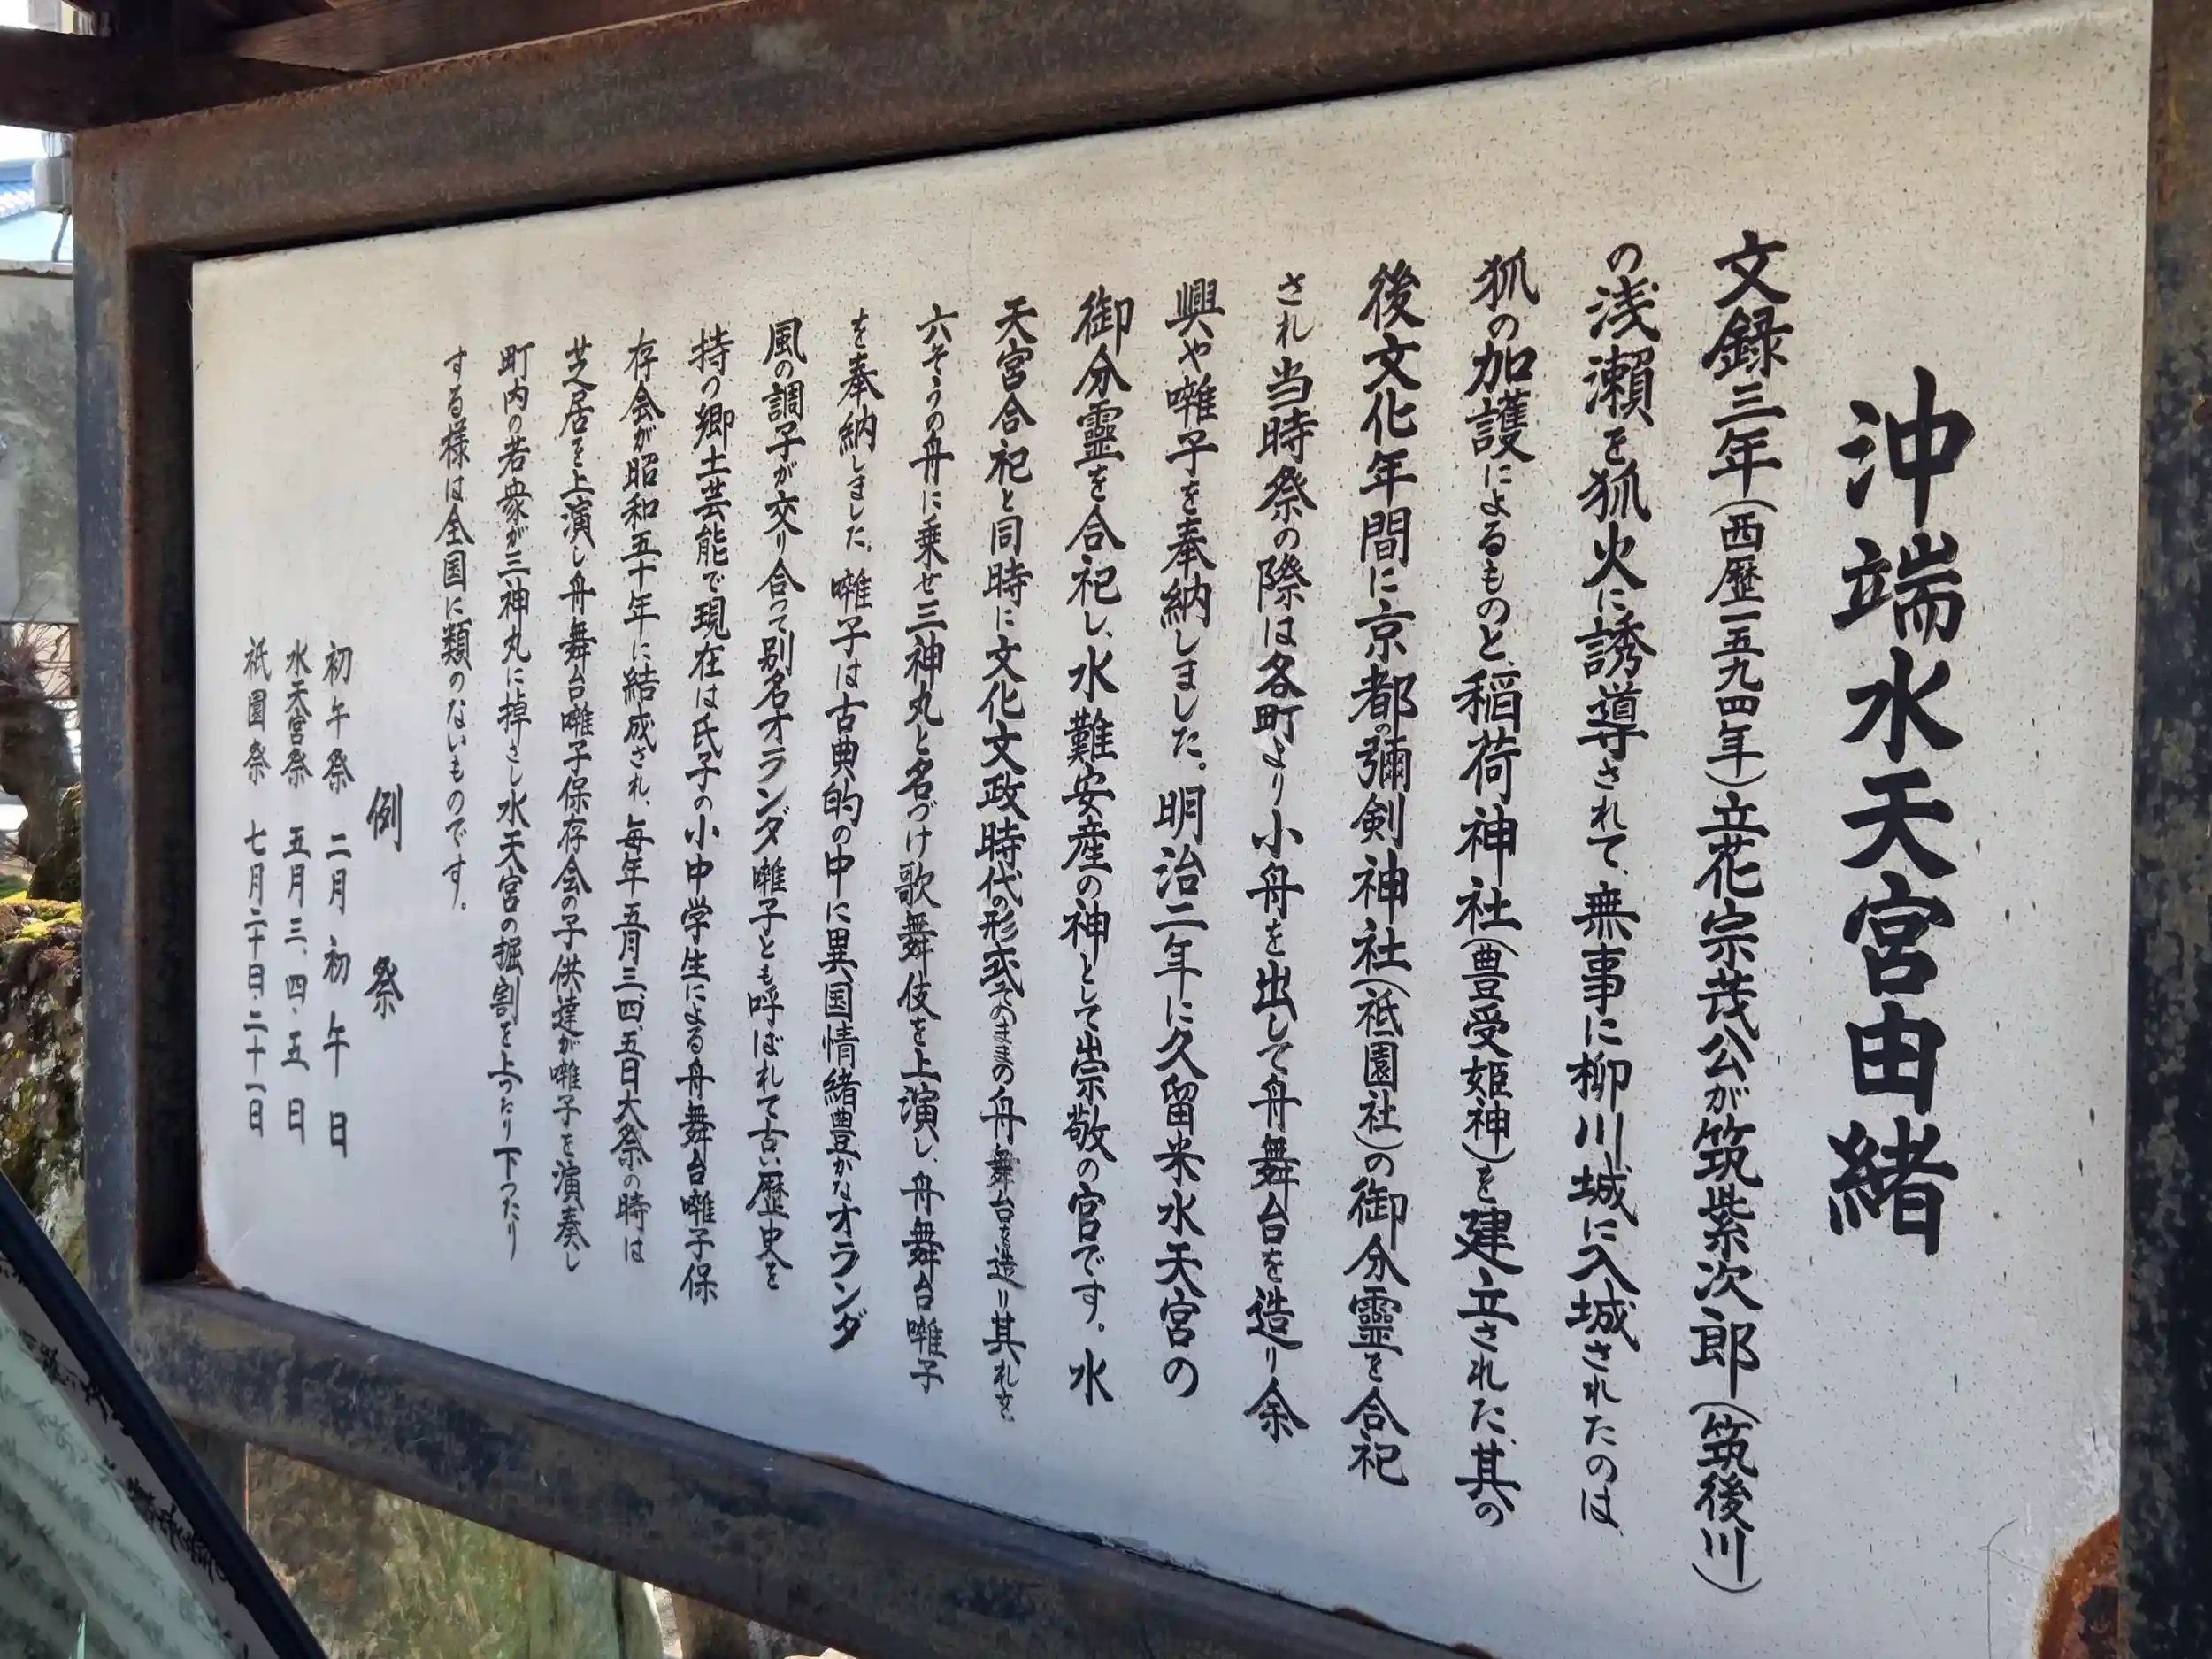 沖端水天宮由緒
文録三年(西歴一五九四年)立花宗茂公が筑紫次郎(筑後川)
の浅瀬を狐火に誘導されて、無事に柳川城に入城されたのは
狐の加護によるものと、稲荷神社(豊受姫神)を建立された、其の
後文化年間に京都の彌剣神社(祇園社)の御分霊を合祀
され当時祭の際は各町より小舟を出して舟舞台を造り余
興や囃子を奉納しました。明治二年に久留米水天宮の
御分霊を合祀し、水難安産の神として崇敬の宮です。水
天宮合祀と同時に文化文政時代の形式そのままの舟舞台を造り其れを、
六そうの舟に乗せ三神丸と名づけ歌舞伎を上演し、舟舞台囃子
を奉納しました。囃子は古典的の中に異国情緒豊かなオランダ
風の調子が交り合って別名オランダ囃子とも呼ばれて古い歴史を
持つ郷土芸能で現在は氏子の小中学生による舟舞台囃子保
存会が昭和五十年に結成され、毎年五月三、四、五日大祭の時は
芝居を上演し舟舞台囃子保存会の子供達が囃子を演奏し
町内の若衆が三神丸に掉さし水天宮の掘割を上ったり下ったり
する様は全国に類のないものです。
例祭
初午祭 二月初午日
水天宮祭 五月三、四、五日
祇園祭 七月二十日、二十一日